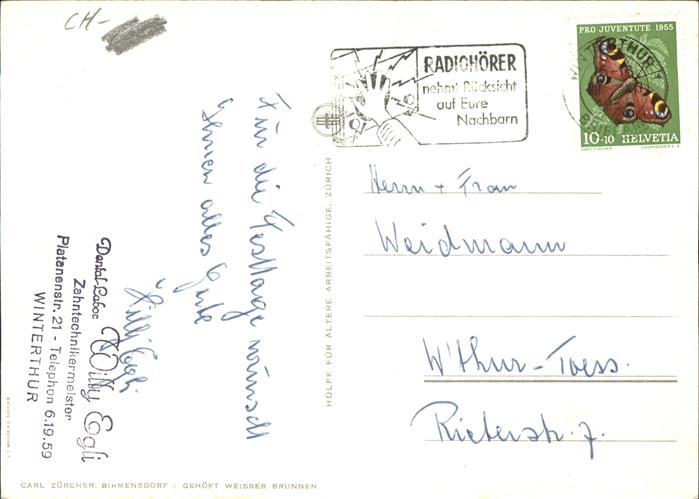 CH-
RADIOHÖRER
nehmt Rücksicht
auf Eure
Nachbarn
PRO JUVENTUTE 1955
WINTERTHUR 1
10+10 HELVETIA
HANS FISCHER COURVOISIER S.A.
Herrn + Frau
Weidmann
W'thur-Toess.
Rieterstr. 7.
Für die Festtage wünscht
Ihnen alles Gute
Willy Egli.
Dental-Labor Willy Egli
Zahntechnikermeister
Platanenstr. 21 - Telephon 6.19.59
WINTERTHUR
HÜLFE FÜR ÄLTERE ARBEITSFÄHIGE, ZÜRICH
CARL ZÜRCHER, BIRMENSDORF / GEHÖFT WEISSER BRUNNEN